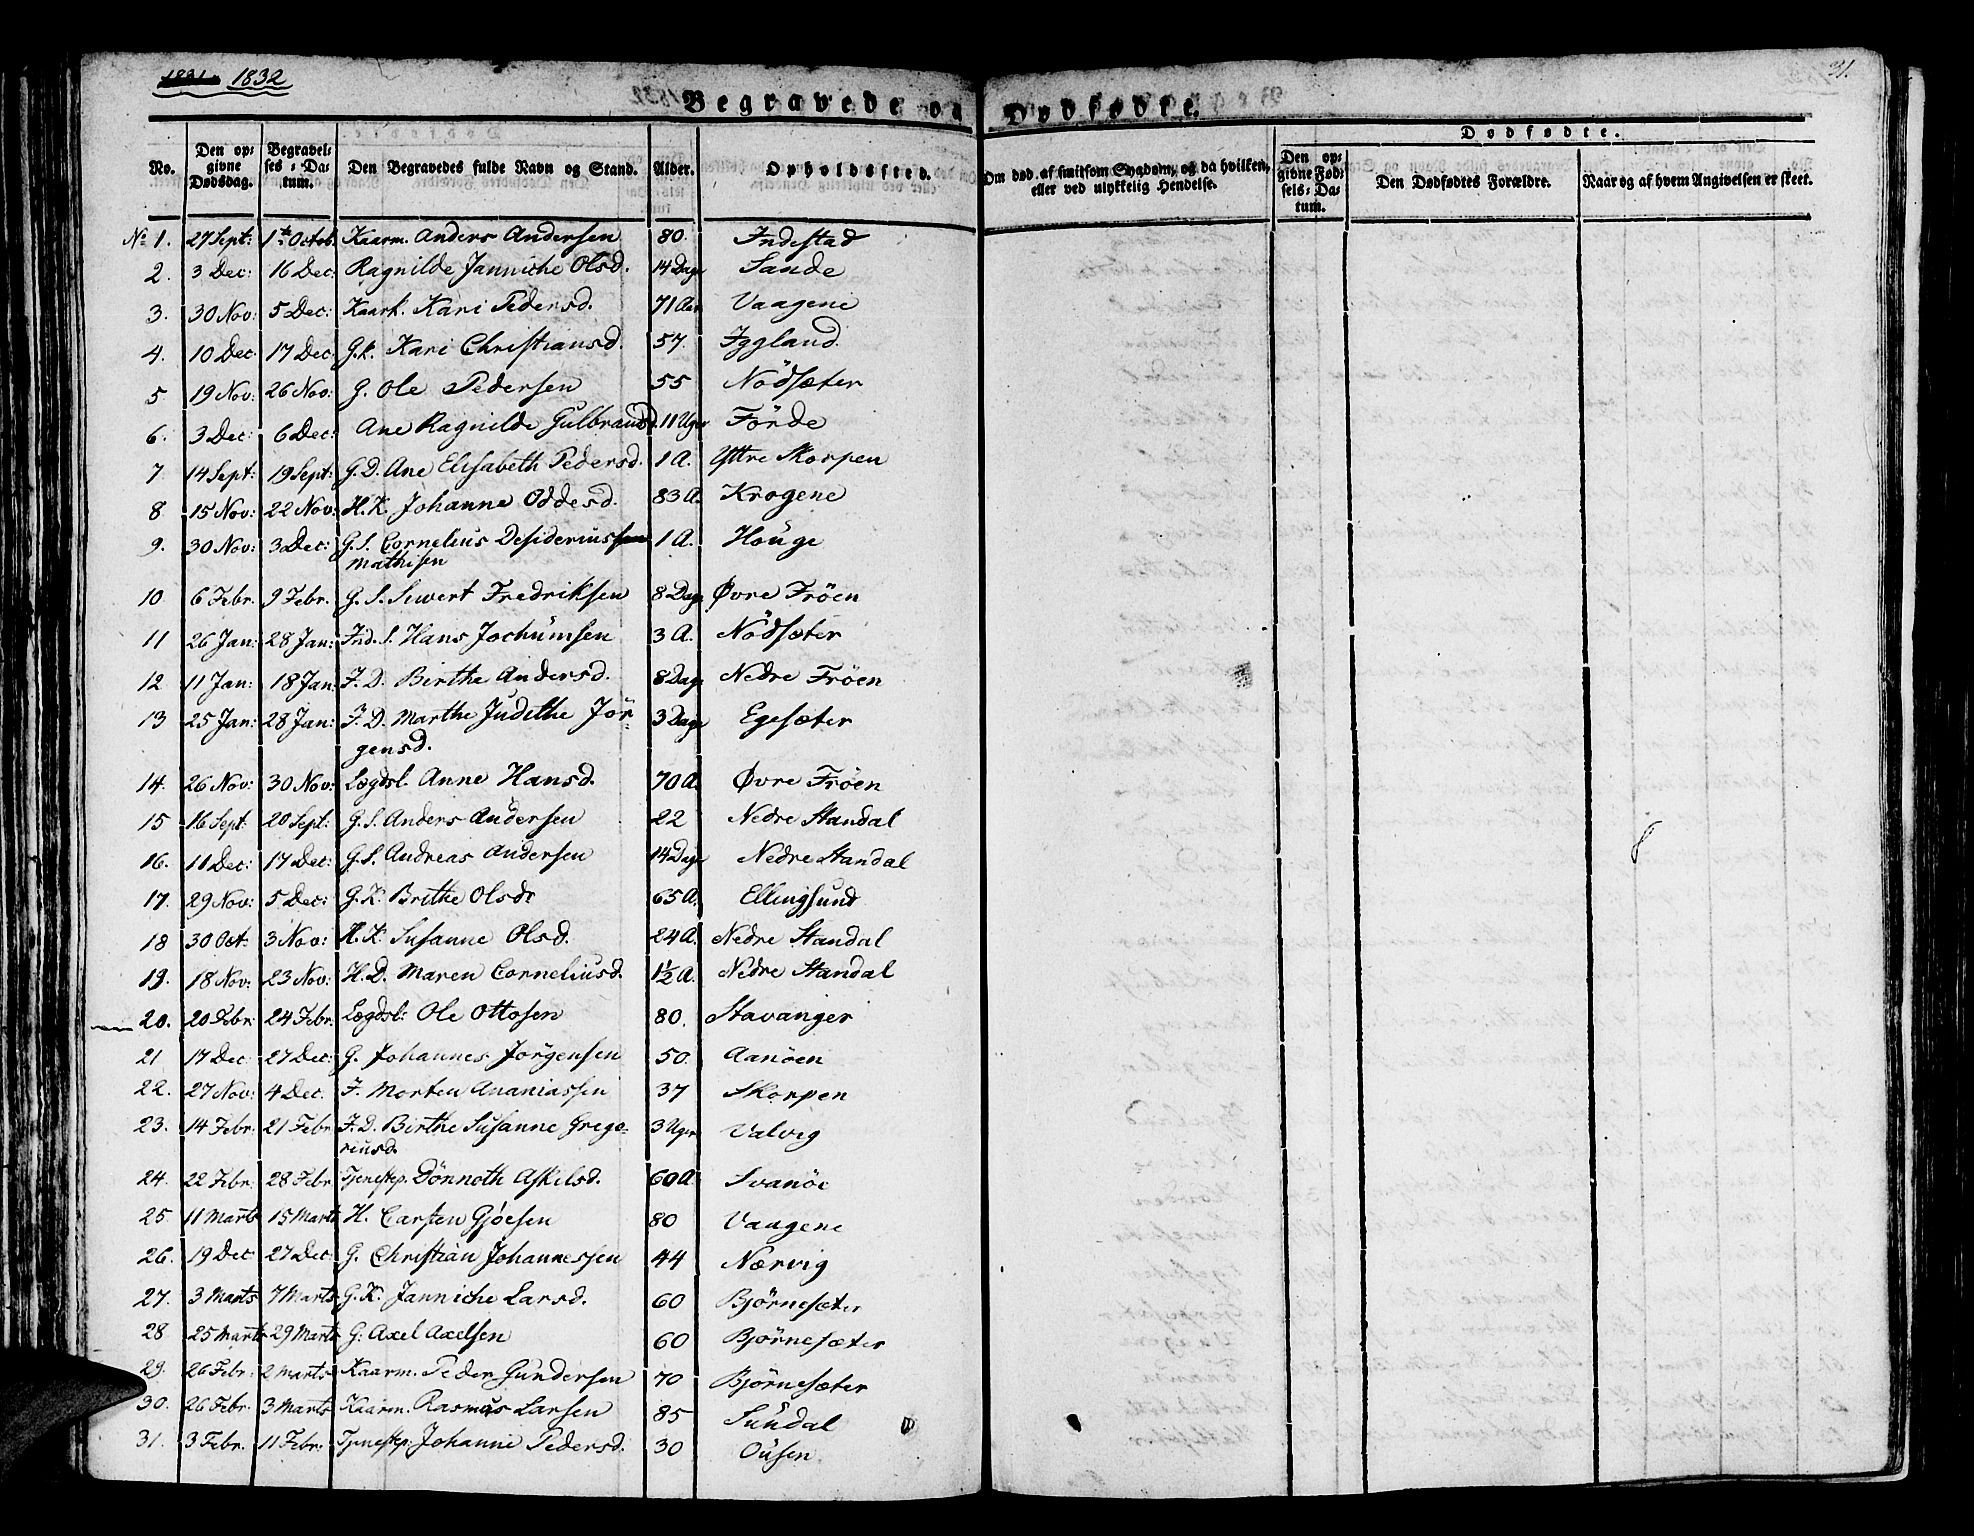 1831. 1832
31.
Begravede og Dødfødte.
No. Den opgivne Dødsdag. Begravelses-Datum. Den Begravedes fulde Navn og Stand. Alder. Opholdssted. Om død af smitsom Sygdom, og da hvilken, eller ved ulykkelig Hendelse. Dødfødte. Den opgivne Fødsels-Datum. Den Dødfødtes Forældre. Naar og af hvem Angivelsen er skeet.
No 1. 27 Sept: 1te Octob. Kaarm. Anders Andersen 80. Indestad
2. 3 Dec: 16 Dec: Ragnilde Janniche Olsd. 14 Dage Sande
3. 30 Nov: 5 Dec: Kaark. Kari Pedersd. 71 Aar Vaagene
4. 10 Dec: 17 Dec G.k. Kari Christiansd. 57. Yggland.
5 19 Nov: 26 Nov: G. Ole Pedersen 55 Nödsæter
6. 3 Dec: 6 Dec: Ane Ragnilde Gulbrandsd. 11 Uger Förde
7. 14 Sept: 19 Sept: G.D. Ane Elisabeth Pedersd. 1 A. Yttre Skorpen
8. 15 Nov: 22 Nov: H.K. Johanne Oddesd. 83 A. Krogene
9. 30 Nov: 3 Dec: G.S. Cornelius Desideriussen 1 A. Houge
Mathisen
10 6 Febr. 9 Febr. G.S. Siwert Fredriksen 8 Dage Øvre Fröen
11 26 Jan: 28 Jan: Ind. S. Hans Jochumsen 3 A. Nödsæter
12 11 Jan: 18 Jan: F.D. Birthe Andersd. 8 Dage Nedre Fröen
13 25 Jan: 28 Jan: F.D. Marthe Judithe Jör- 3 Dage Egesæter
gensd.
14. 26 Nov: 30 Nov: Lægdsl. Anne Hansd. 70 A. Øvre Fröen
15 16 Sept: 20 Sept: G.S. Anders Andersen 22 Nedre Standal
16. 11 Dec: 17 Dec: G.S. Andreas Andersen 14 Dage Nedre Standal
17. 29 Nov: 5 Dec: G.K. Brithe Olsdr 65 A. Ellingsund
18 30 Oct. 3 Nov: H.K. Susanne Olsd. 24 A. Nedre Standal
19. 18 Nov: 23 Nov: H.D. Maren Corneliusd. 1½ A. Nedre Standal
20. 20 Febr: 24 Febr. Lægdsl: Ole Ottosen 80. Stavanger
21 17 Dec 27 Dec: G. Johannes Jörgensen 50. Aanöen
22. 27 Nov: 4 Dec. F. Morten Ananiassen 37 Skorpen
23. 14 Febr: 21 Febr F.D. Birthe Susanne Grego- 3 Uger Valvig
riusd.
24. 22 Febr. 28 Febr Tjenestep. Dönnoth Askelsd. 60 A Svanöe
25. 11 Marts 15 Marts H. Carsten Gjöesen 80 Vaagene
26. 19 Dec 27 Dec G. Christian Johannessen 44 Nærvig
27. 3 Marts 7 Marts G.K. Janniche Larsd. 60 Björnesæter
28. 25 Marts 29 Marts G: Axel Axelsen 60 Björnesæter
29. 26 Febr: 2 Marts Kaarm. Peder Gundersen 70 Björnesæter
30. 26 Febr. 3 Marts Kaarm. Rasmus Larsen 85 Sundal
31. 3 Febr. 11 Febr. Tjenestep. Johanne Pedersd. 30 Ousen